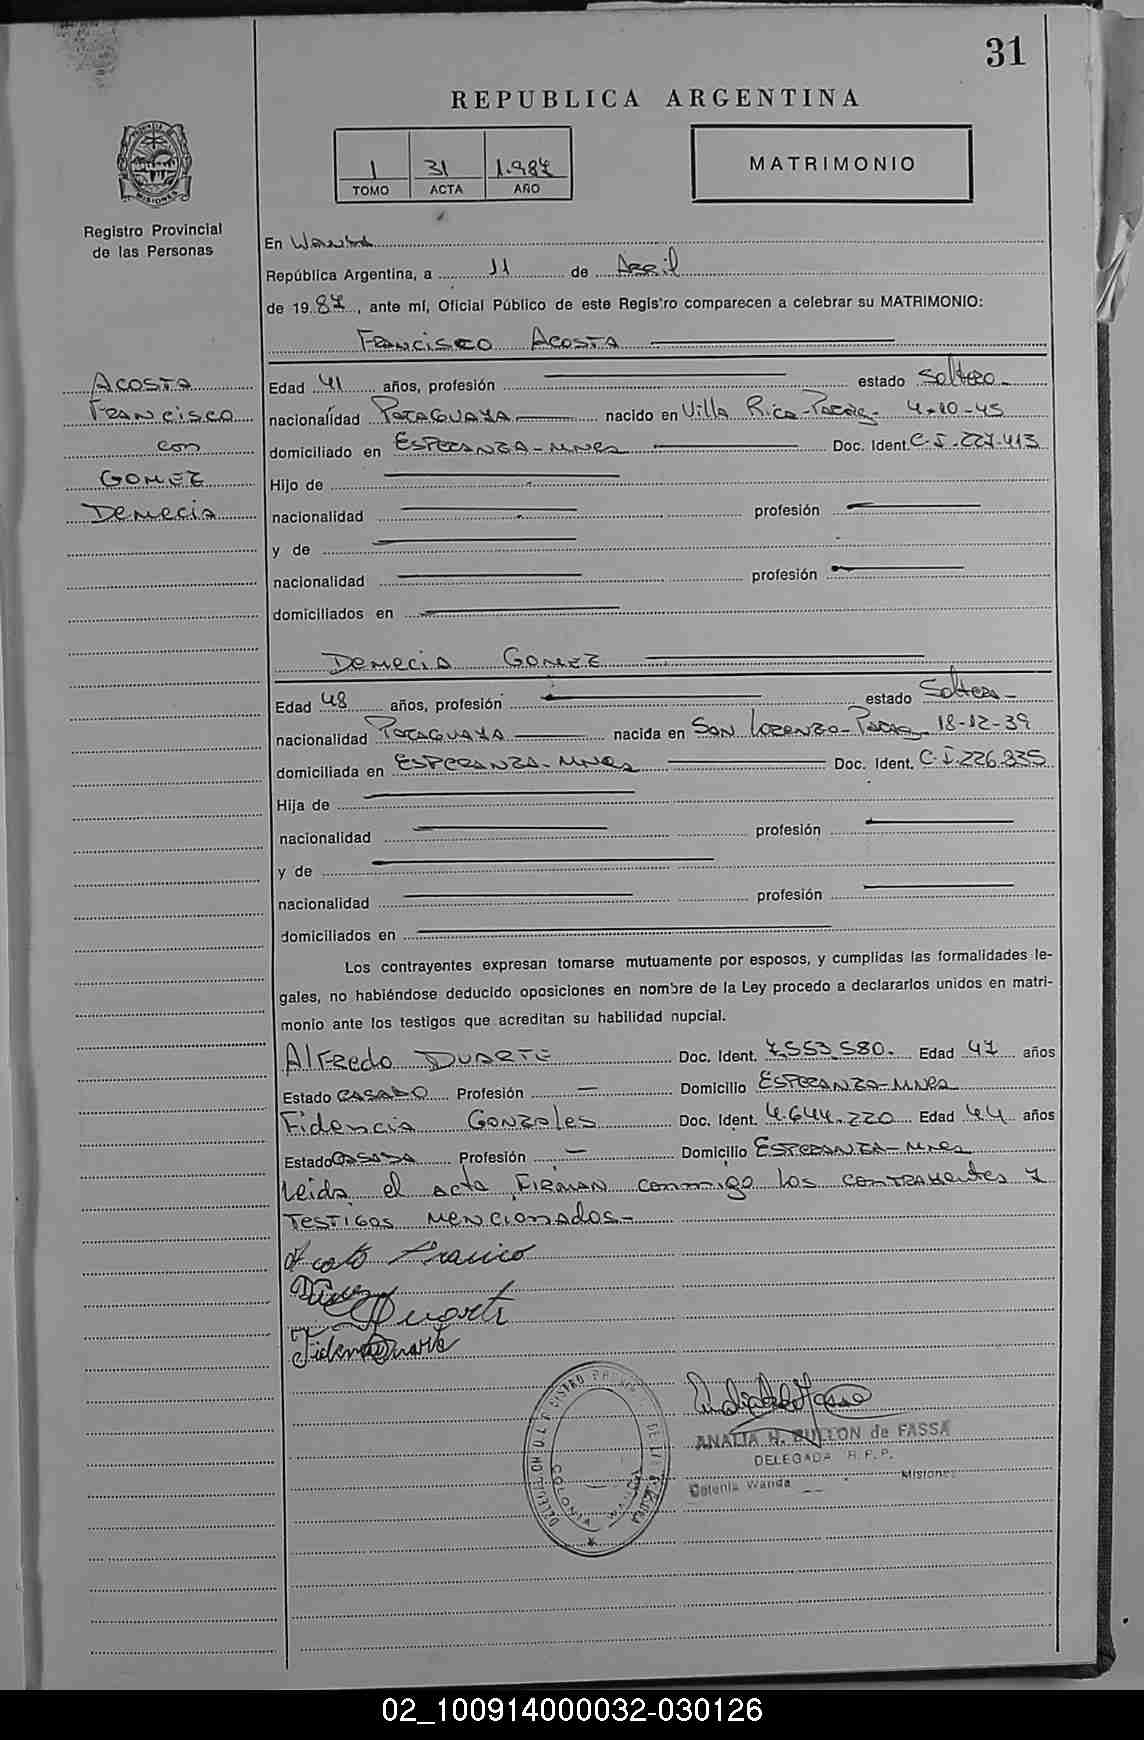 31
REPUBLICA ARGENTINA
1 31 1.987
TOMO ACTA AÑO
MATRIMONIO
MISIONES
Registro Provincial
de las Personas
En Wanda
República Argentina, a 11 de Abril
de 1987, ante mí, Oficial Público de este Registro comparecen a celebrar su MATRIMONIO:
FRANCISCO ACOSTA
ACOSTA
FRANCISCO
con
GOMEZ
Demecia
Edad 41 años, profesión estado Soltero
nacionalidad PARAGUAYA nacido en Villa Rica-Parag- 4-10-45
domiciliado en ESPERANZA-MNES Doc. Ident. C.I.227.413
Hijo de
nacionalidad profesión
y de
nacionalidad profesión
domiciliados en
Demecia GOMEZ
Edad 48 años, profesión estado Soltera
nacionalidad PARAGUAYA nacida en SAN LORENZO-Parag 18-12-39
domiciliada en ESPERANZA-MNES Doc. Ident. C.I.226.835
Hija de
nacionalidad profesión
y de
nacionalidad profesión
domiciliados en
Los contrayentes expresan tomarse mutuamente por esposos, y cumplidas las formalidades le-
gales, no habiéndose deducido oposiciones en nombre de la Ley procedo a declararlos unidos en matri-
monio ante los testigos que acreditan su habilidad nupcial.
Alfredo DUARTE Doc. Ident. 7.553.580. Edad 47 años
Estado CASADO Profesión — Domicilio ESPERANZA-MNES
Fidencia GONZALES Doc. Ident. 4.644.220 Edad 44 años
Estado CASADA Profesión — Domicilio ESPERANZA-MNES
Leida el acta, FIRMAN conmigo los CONTRAYENTES y
TESTIGOS MENCIONADOS-
Duarte
Fidencia Duarte
ANALIA H. BULLON de FASSA
DELEGADA R.P.P.
Colonia Wanda Misiones
02_100914000032-030126